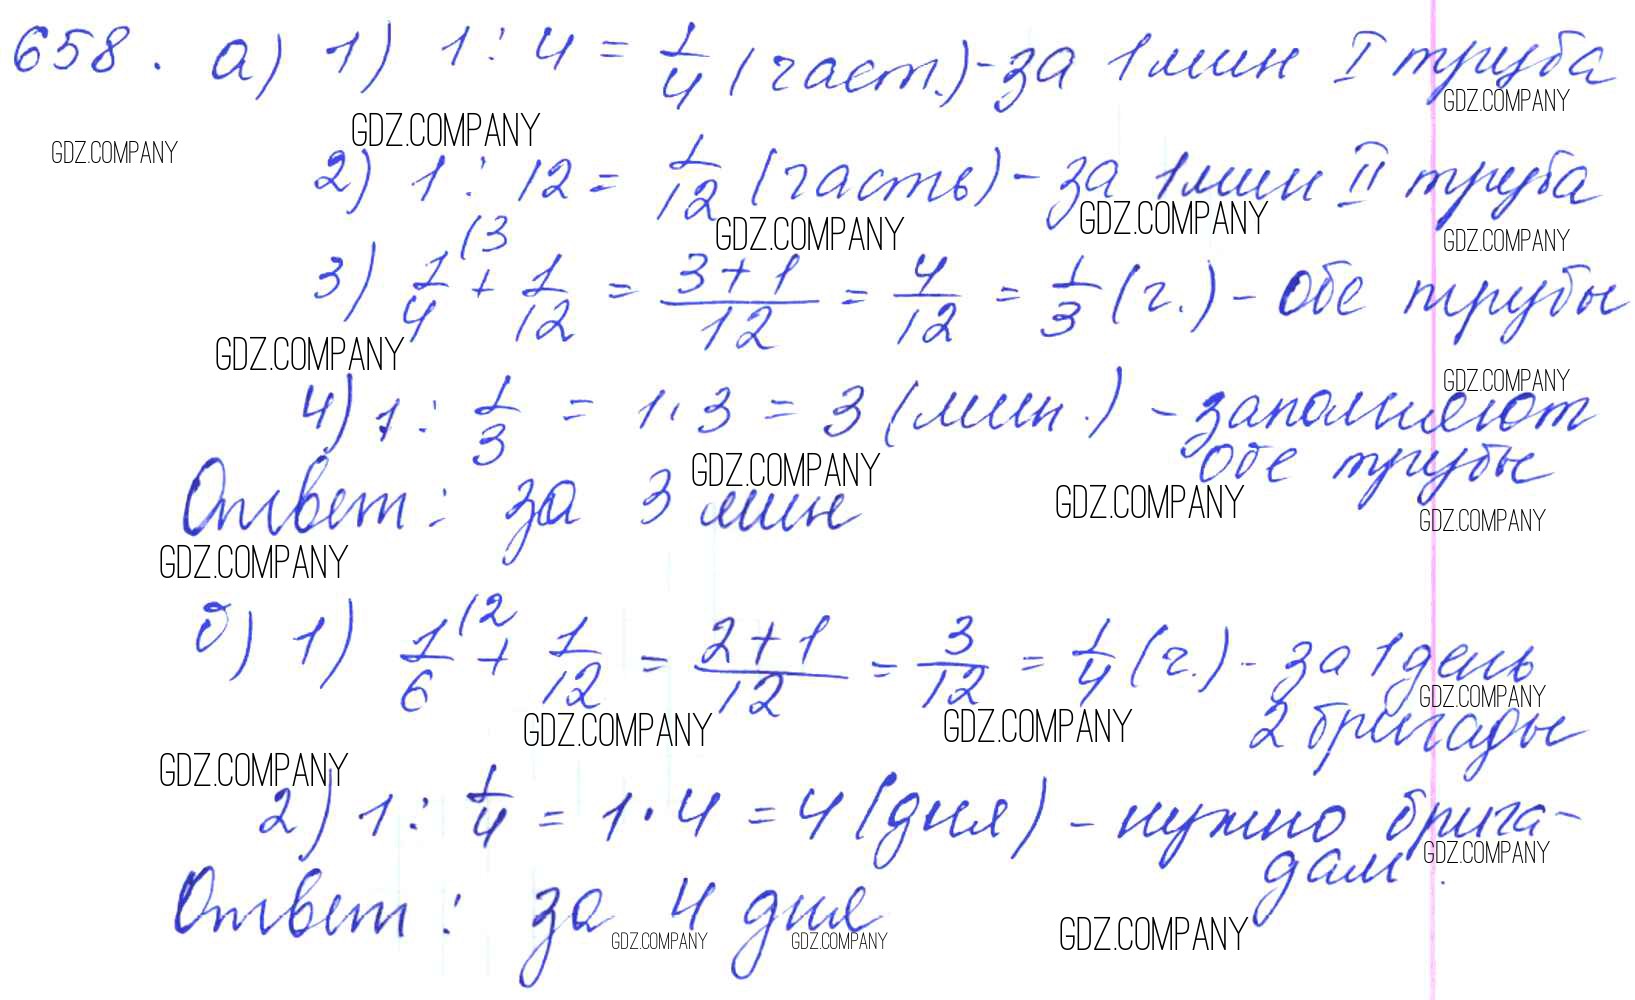 658. а) 1) 1 : 4 = 1/4 (част.) - за 1 мин I труба
GDZ.COMPANY
GDZ.COMPANY GDZ.COMPANY
2) 1 : 12 = 1/12 (часть) - за 1 мин II труба
GDZ.COMPANY GDZ.COMPANY GDZ.COMPANY
3) 1/4 (3 + 1/12 = 3+1/12 = 4/12 = 1/3 (г.) - Обе трубы
GDZ.COMPANY GDZ.COMPANY
4) 1 : 1/3 = 1 · 3 = 3 (мин.) - заполняют
обе трубы
GDZ.COMPANY GDZ.COMPANY
Ответ : за 3 мин
GDZ.COMPANY GDZ.COMPANY
б) 1) 1/6 (2 + 1/12 = 2+1/12 = 3/12 = 1/4 (г.) - за 1 день
GDZ.COMPANY
2 бригады
GDZ.COMPANY GDZ.COMPANY
GDZ.COMPANY
2) 1 : 1/4 = 1 · 4 = 4 (дня) - нужно брига-
дам.
GDZ.COMPANY
Ответ : за 4 дня
GDZ.COMPANY GDZ.COMPANY GDZ.COMPANY